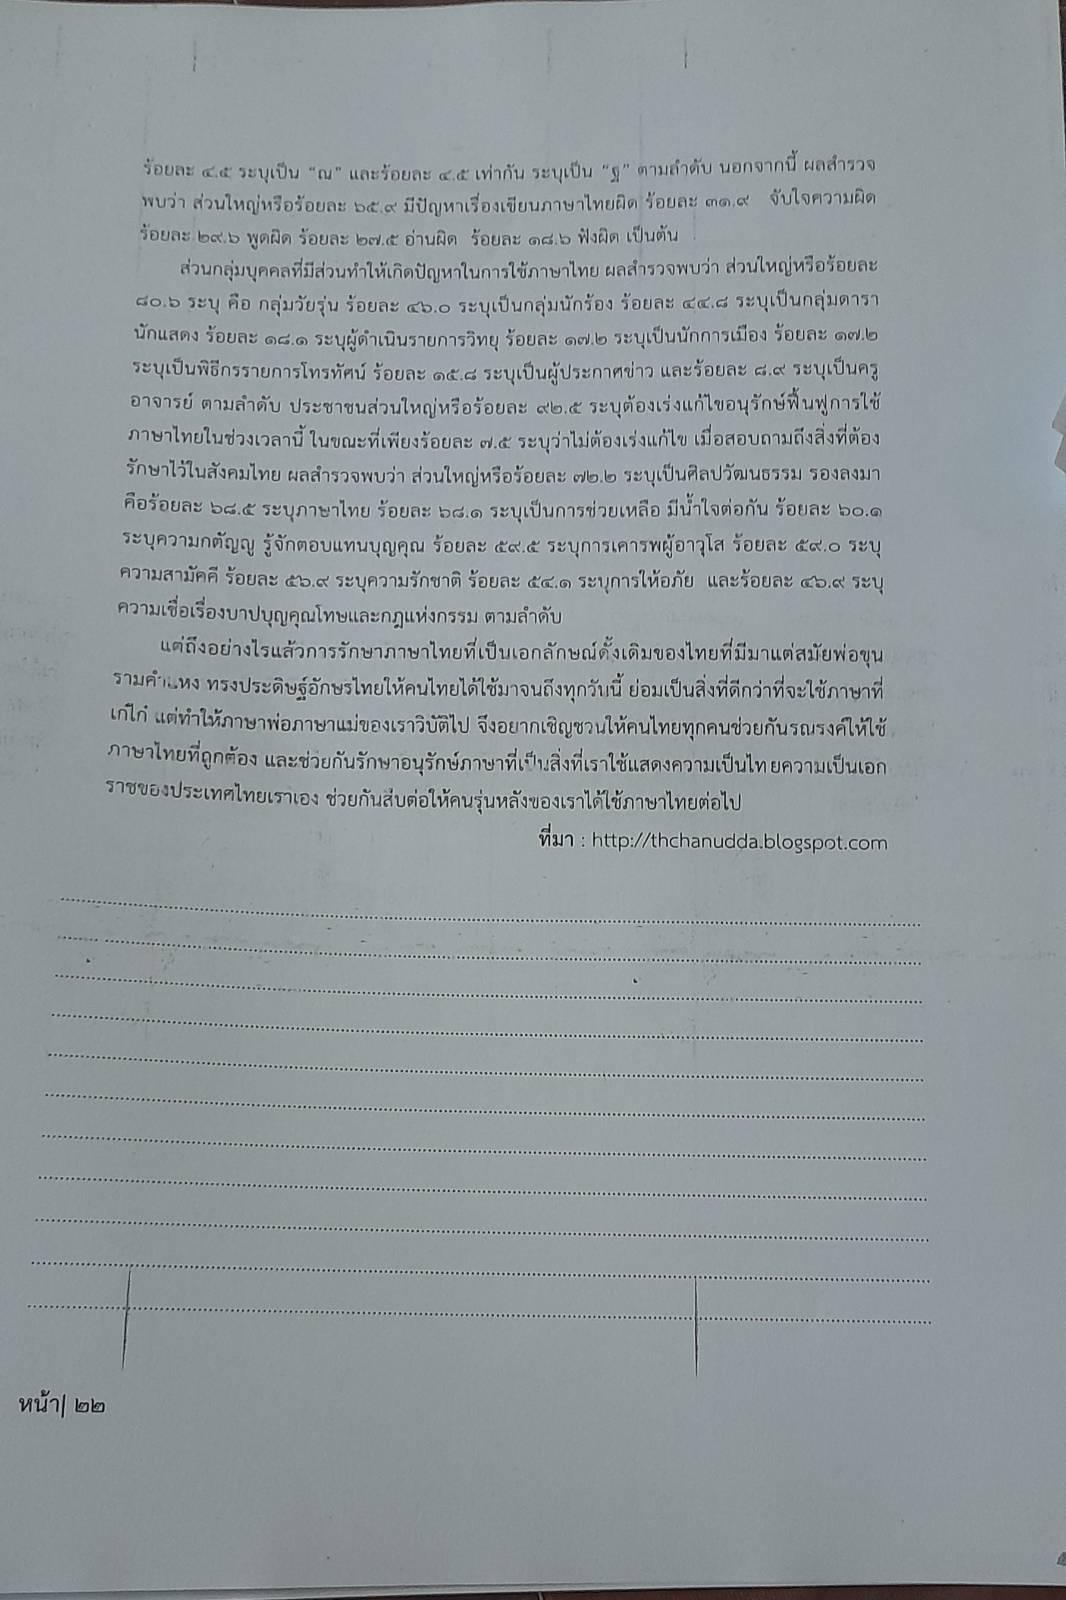 ร้อยละ ๔.๕ ระบุเป็น “ณ” และร้อยละ ๔.๕ เท่ากัน ระบุเป็น “ฐ” ตามลำดับ นอกจากนี้ ผลสำรวจ
พบว่า ส่วนใหญ่หรือร้อยละ ๖๕.๙ มีปัญหาเรื่องเขียนภาษาไทยผิด ร้อยละ ๓๑.๙ จับใจความผิด
ร้อยละ ๒๙.๖ พูดผิด ร้อยละ ๒๗.๕ อ่านผิด ร้อยละ ๑๘.๖ ฟังผิด เป็นต้น
ส่วนกลุ่มบุคคลที่มีส่วนทำให้เกิดปัญหาในการใช้ภาษาไทย ผลสำรวจพบว่า ส่วนใหญ่หรือร้อยละ
๘๐.๖ ระบุ คือ กลุ่มวัยรุ่น ร้อยละ ๔๖.๐ ระบุเป็นกลุ่มนักร้อง ร้อยละ ๔๔.๘ ระบุเป็นกลุ่มดารา
นักแสดง ร้อยละ ๑๘.๑ ระบุผู้ดำเนินรายการวิทยุ ร้อยละ ๑๗.๒ ระบุเป็นนักการเมือง ร้อยละ ๑๗.๒
ระบุเป็นพิธีกรรายการโทรทัศน์ ร้อยละ ๑๕.๘ ระบุเป็นผู้ประกาศข่าว และร้อยละ ๘.๙ ระบุเป็นครู
อาจารย์ ตามลำดับ ประชาชนส่วนใหญ่หรือร้อยละ ๙๒.๕ ระบุต้องเร่งแก้ไขอนุรักษ์ฟื้นฟูการใช้
ภาษาไทยในช่วงเวลานี้ ในขณะที่เพียงร้อยละ ๗.๕ ระบุว่าไม่ต้องเร่งแก้ไข เมื่อสอบถามถึงสิ่งที่ต้อง
รักษาไว้ในสังคมไทย ผลสำรวจพบว่า ส่วนใหญ่หรือร้อยละ ๗๒.๒ ระบุเป็นศิลปวัฒนธรรม รองลงมา
คือร้อยละ ๖๘.๕ ระบุภาษาไทย ร้อยละ ๖๘.๑ ระบุเป็นการช่วยเหลือ มีน้ำใจต่อกัน ร้อยละ ๖๐.๑
ระบุความกตัญญู รู้จักตอบแทนบุญคุณ ร้อยละ ๕๙.๕ ระบุการเคารพผู้อาวุโส ร้อยละ ๕๙.๐ ระบุ
ความสามัคคี ร้อยละ ๕๖.๙ ระบุความรักชาติ ร้อยละ ๕๔.๑ ระบุการให้อภัย และร้อยละ ๔๖.๙ ระบุ
ความเชื่อเรื่องบาปบุญคุณโทษและกฎแห่งกรรม ตามลำดับ
แต่ถึงอย่างไรแล้วการรักษาภาษาไทยที่เป็นเอกลักษณ์ดั้งเดิมของไทยที่มีมาแต่สมัยพ่อขุน
รามคำแหง ทรงประดิษฐ์อักษรไทยให้คนไทยได้ใช้มาจนถึงทุกวันนี้ ย่อมเป็นสิ่งที่ดีกว่าที่จะใช้ภาษาที่
เก๋ไก๋ แต่ทำให้ภาษาพ่อภาษาแม่ของเราวิบัติไป จึงอยากเชิญชวนให้คนไทยทุกคนช่วยกันรณรงค์ให้ใช้
ภาษาไทยที่ถูกต้อง และช่วยกันรักษาอนุรักษ์ภาษาที่เป็นสิ่งที่เราใช้แสดงความเป็นไทยความเป็นเอก
ราชของประเทศไทยเราเอง ช่วยกันสืบต่อให้คนรุ่นหลังของเราได้ใช้ภาษาไทยต่อไป
ที่มา : http://thchanudda.blogspot.com
หน้า| ๒๒